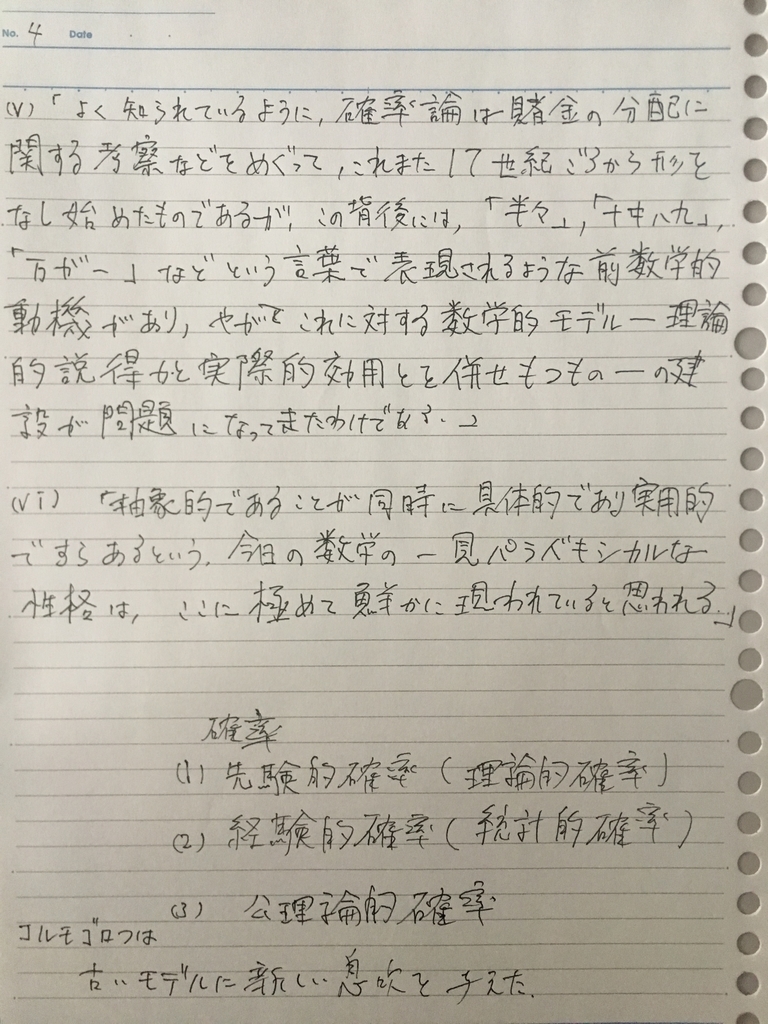 No. 4 Date . .
(V)「よく知られているように, 確率論は賭金の分配に
関する考察などをめぐって, これまた17世紀ごろから形を
なし始めたものであるが, この背後には, 「半々」,「十中八九」,
「万が一」などという言葉で表現されるような前数学的
動機があり, やがてこれに対する数学的モデルー理論
的説得力と実際的効用とを併せもつものーの建
設が問題になってきたわけである.」
(Vi)「抽象的であることが同時に具体的であり実用的
ですらあるという, 今日の数学の一見パラドキシカルな
性格は, ここに極めて鮮かに現われていると思われる.」
確率
(1) 先験的確率(理論的確率)
(2) 経験的確率(統計的確率)
(3) 公理論的確率
コルモゴロフは
古いモデルに新しい息吹を与えた.